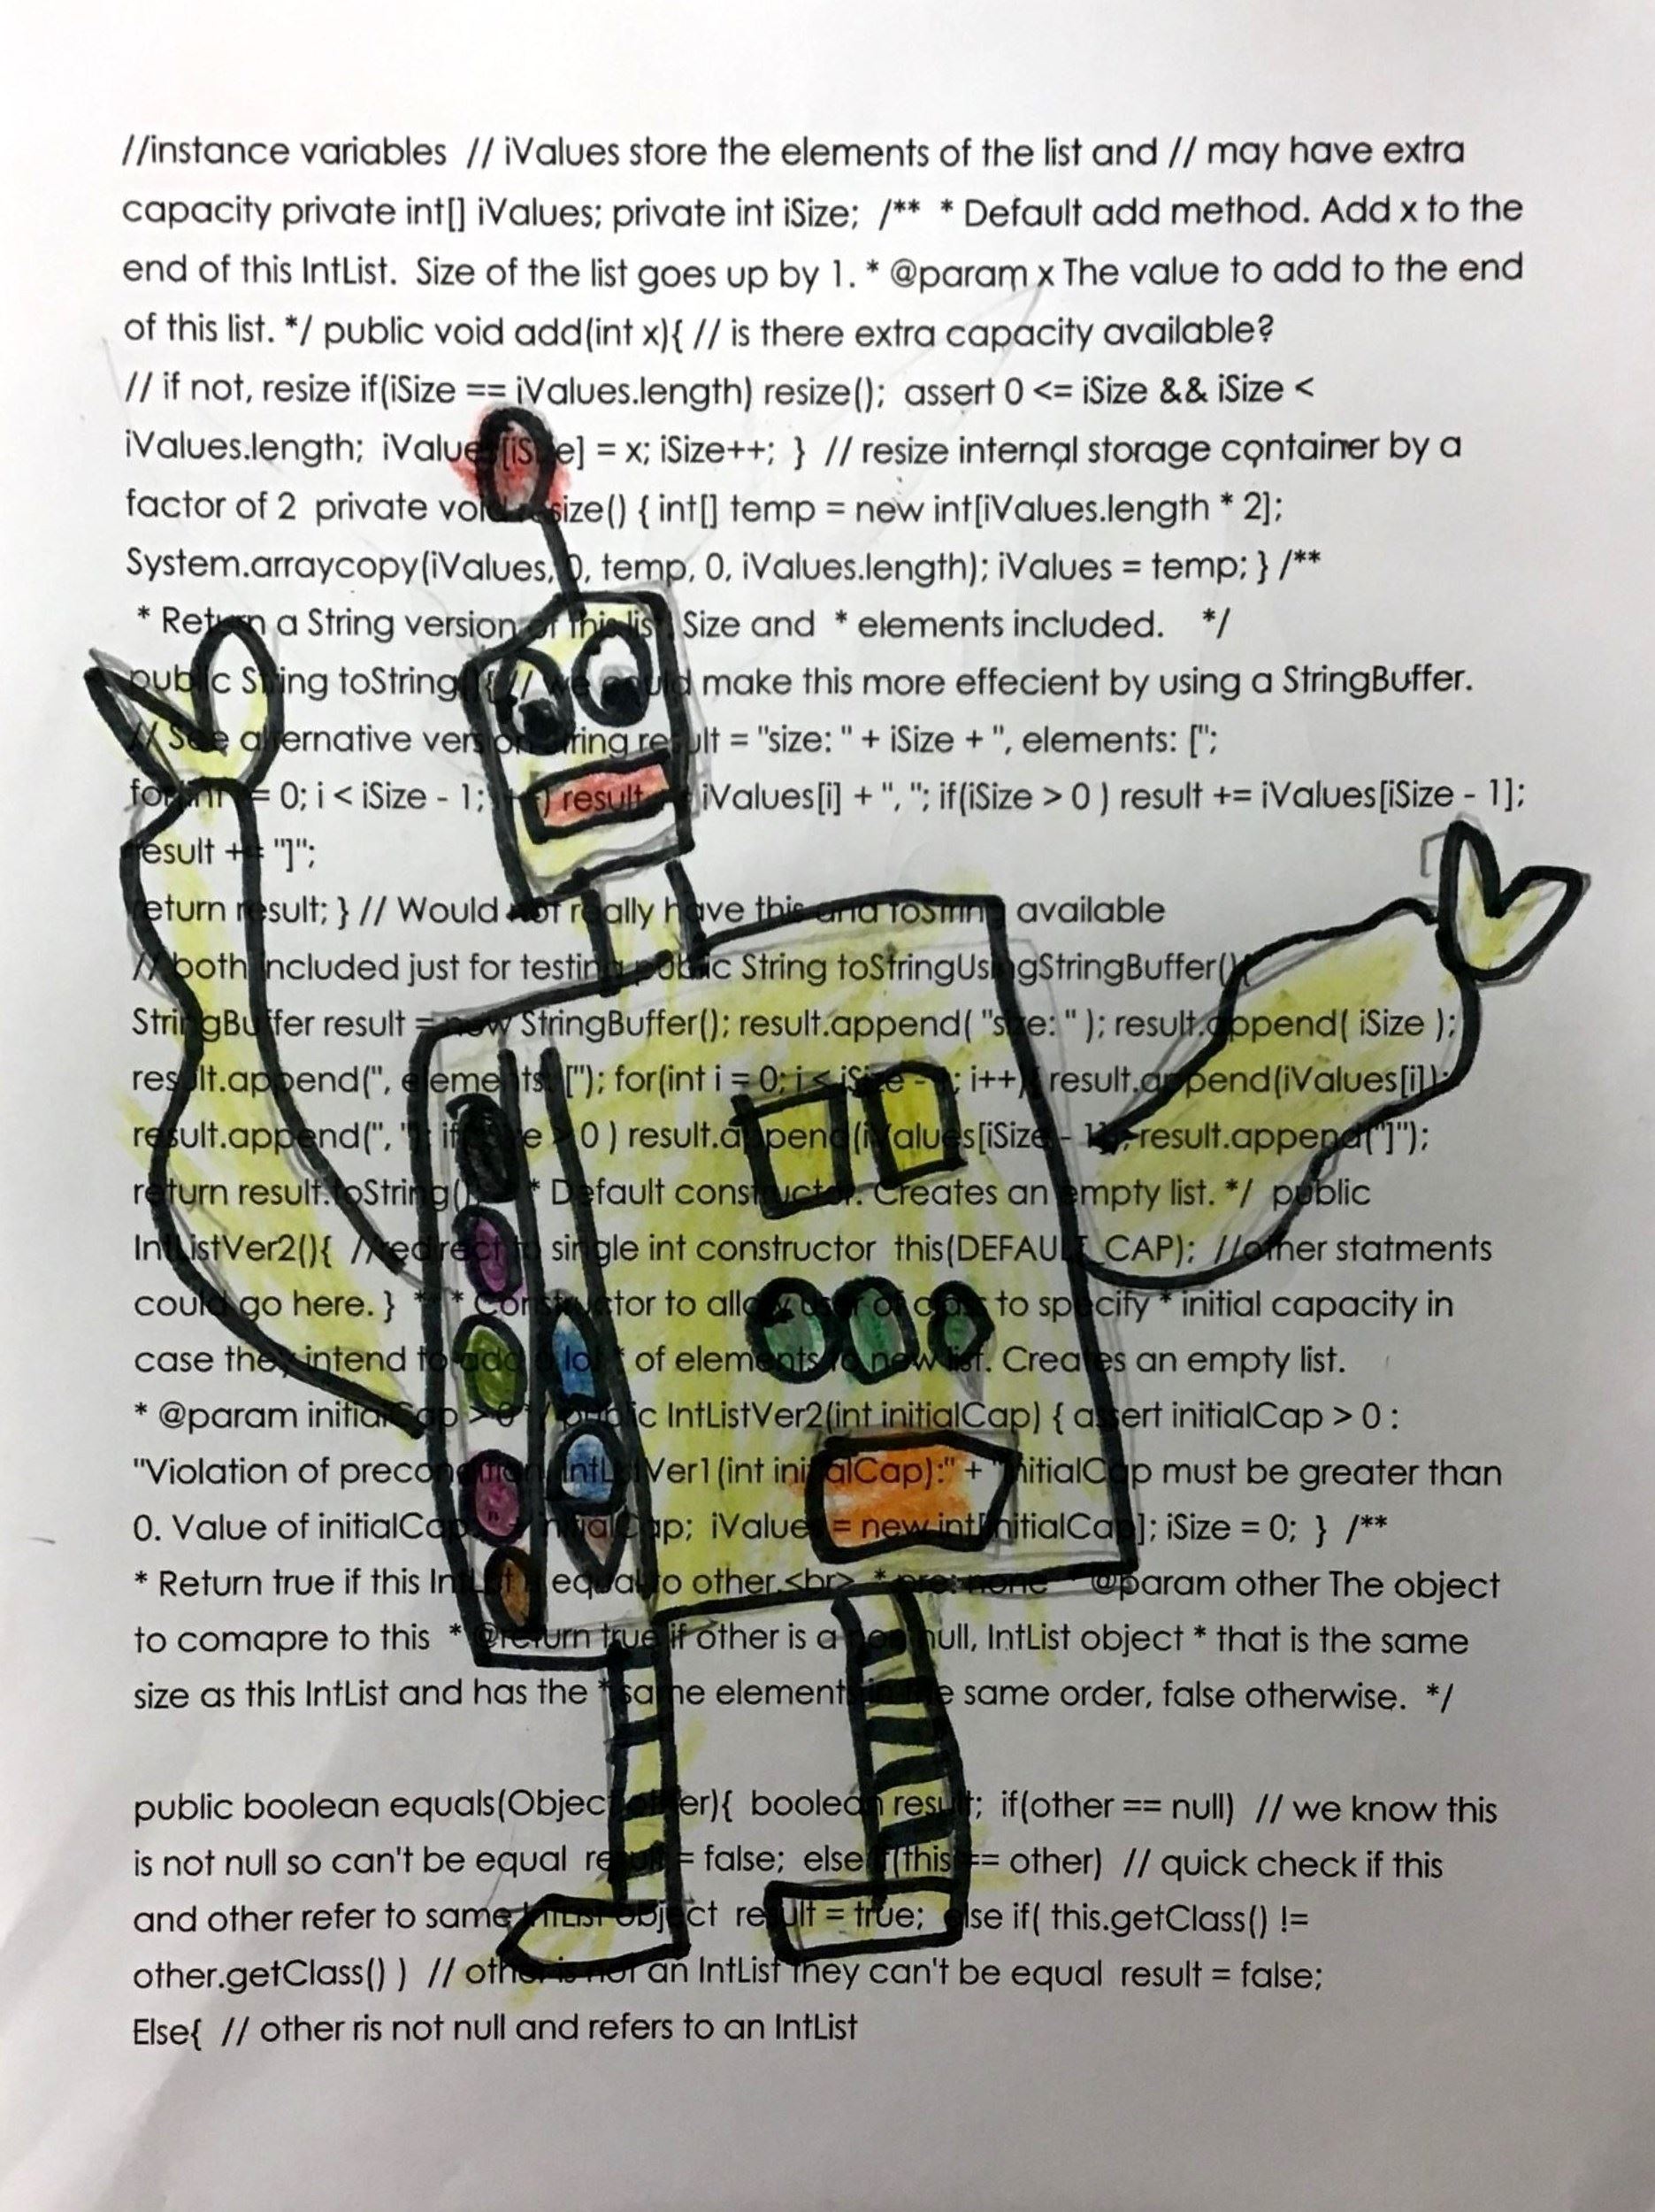 //instance variables // iValues store the elements of the list and // may have extra
capacity private int[] iValues; private int iSize; /** * Default add method. Add x to the
end of this IntList. Size of the list goes up by 1. * @param x The value to add to the end
of this list. */ public void add(int x){ // is there extra capacity available?
// if not, resize if(iSize == iValues.length) resize(); assert 0 <= iSize && iSize <
iValues.length; iValues[iSize] = x; iSize++; } // resize internal storage container by a
factor of 2 private void resize() { int[] temp = new int[iValues.length * 2];
System.arraycopy(iValues, 0, temp, 0, iValues.length); iValues = temp; } /**
* Return a String version of this list. Size and * elements included. */
public String toString(){ // we could make this more effecient by using a StringBuffer.
// See alternative version String result = "size: " + iSize + ", elements: [";
for(int = 0; i < iSize - 1; result iValues[i] + ", "; if(iSize > 0 ) result += iValues[iSize - 1];
result += "]";
return result; } // Would not really have this and toString available
// both included just for testing public String toStringUsingStringBuffer(){
StringBuffer result = new StringBuffer(); result.append( "size: " ); result.append( iSize );
result.append(", elements: ["); for(int i = 0; i < iSize - 1; i++){ result.append(iValues[i]);
result.append(", "); if(iSize > 0 ) result.append(iValues[iSize - 1]); result.append("]");
return result.toString(); * Default constructor. Creates an empty list. */ public
IntListVer2(){ //redirect to single int constructor this(DEFAULT_CAP); //other statments
could go here. } * Constructor to allow user of class to specify * initial capacity in
case they intend to add a lot * of elements to new list. Creates an empty list.
* @param initialCap > 0 */ public IntListVer2(int initialCap) { assert initialCap > 0 :
"Violation of precondition. IntListVer1(int initialCap):" + "initialCap must be greater than
0. Value of initialCap: initialCap; iValues = new int[initialCap]; iSize = 0; } /**
* Return true if this IntList is equal to other.<br> * pre: none * @param other The object
to comapre to this * @return true if other is a non null, IntList object * that is the same
size as this IntList and has the * same elements in the same order, false otherwise. */
public boolean equals(Object other){ boolean result; if(other == null) // we know this
is not null so can't be equal result = false; else if(this == other) // quick check if this
and other refer to same IntList object result = true; else if( this.getClass() !=
other.getClass() ) // other is not an IntList they can't be equal result = false;
Else{ // other ris not null and refers to an IntList